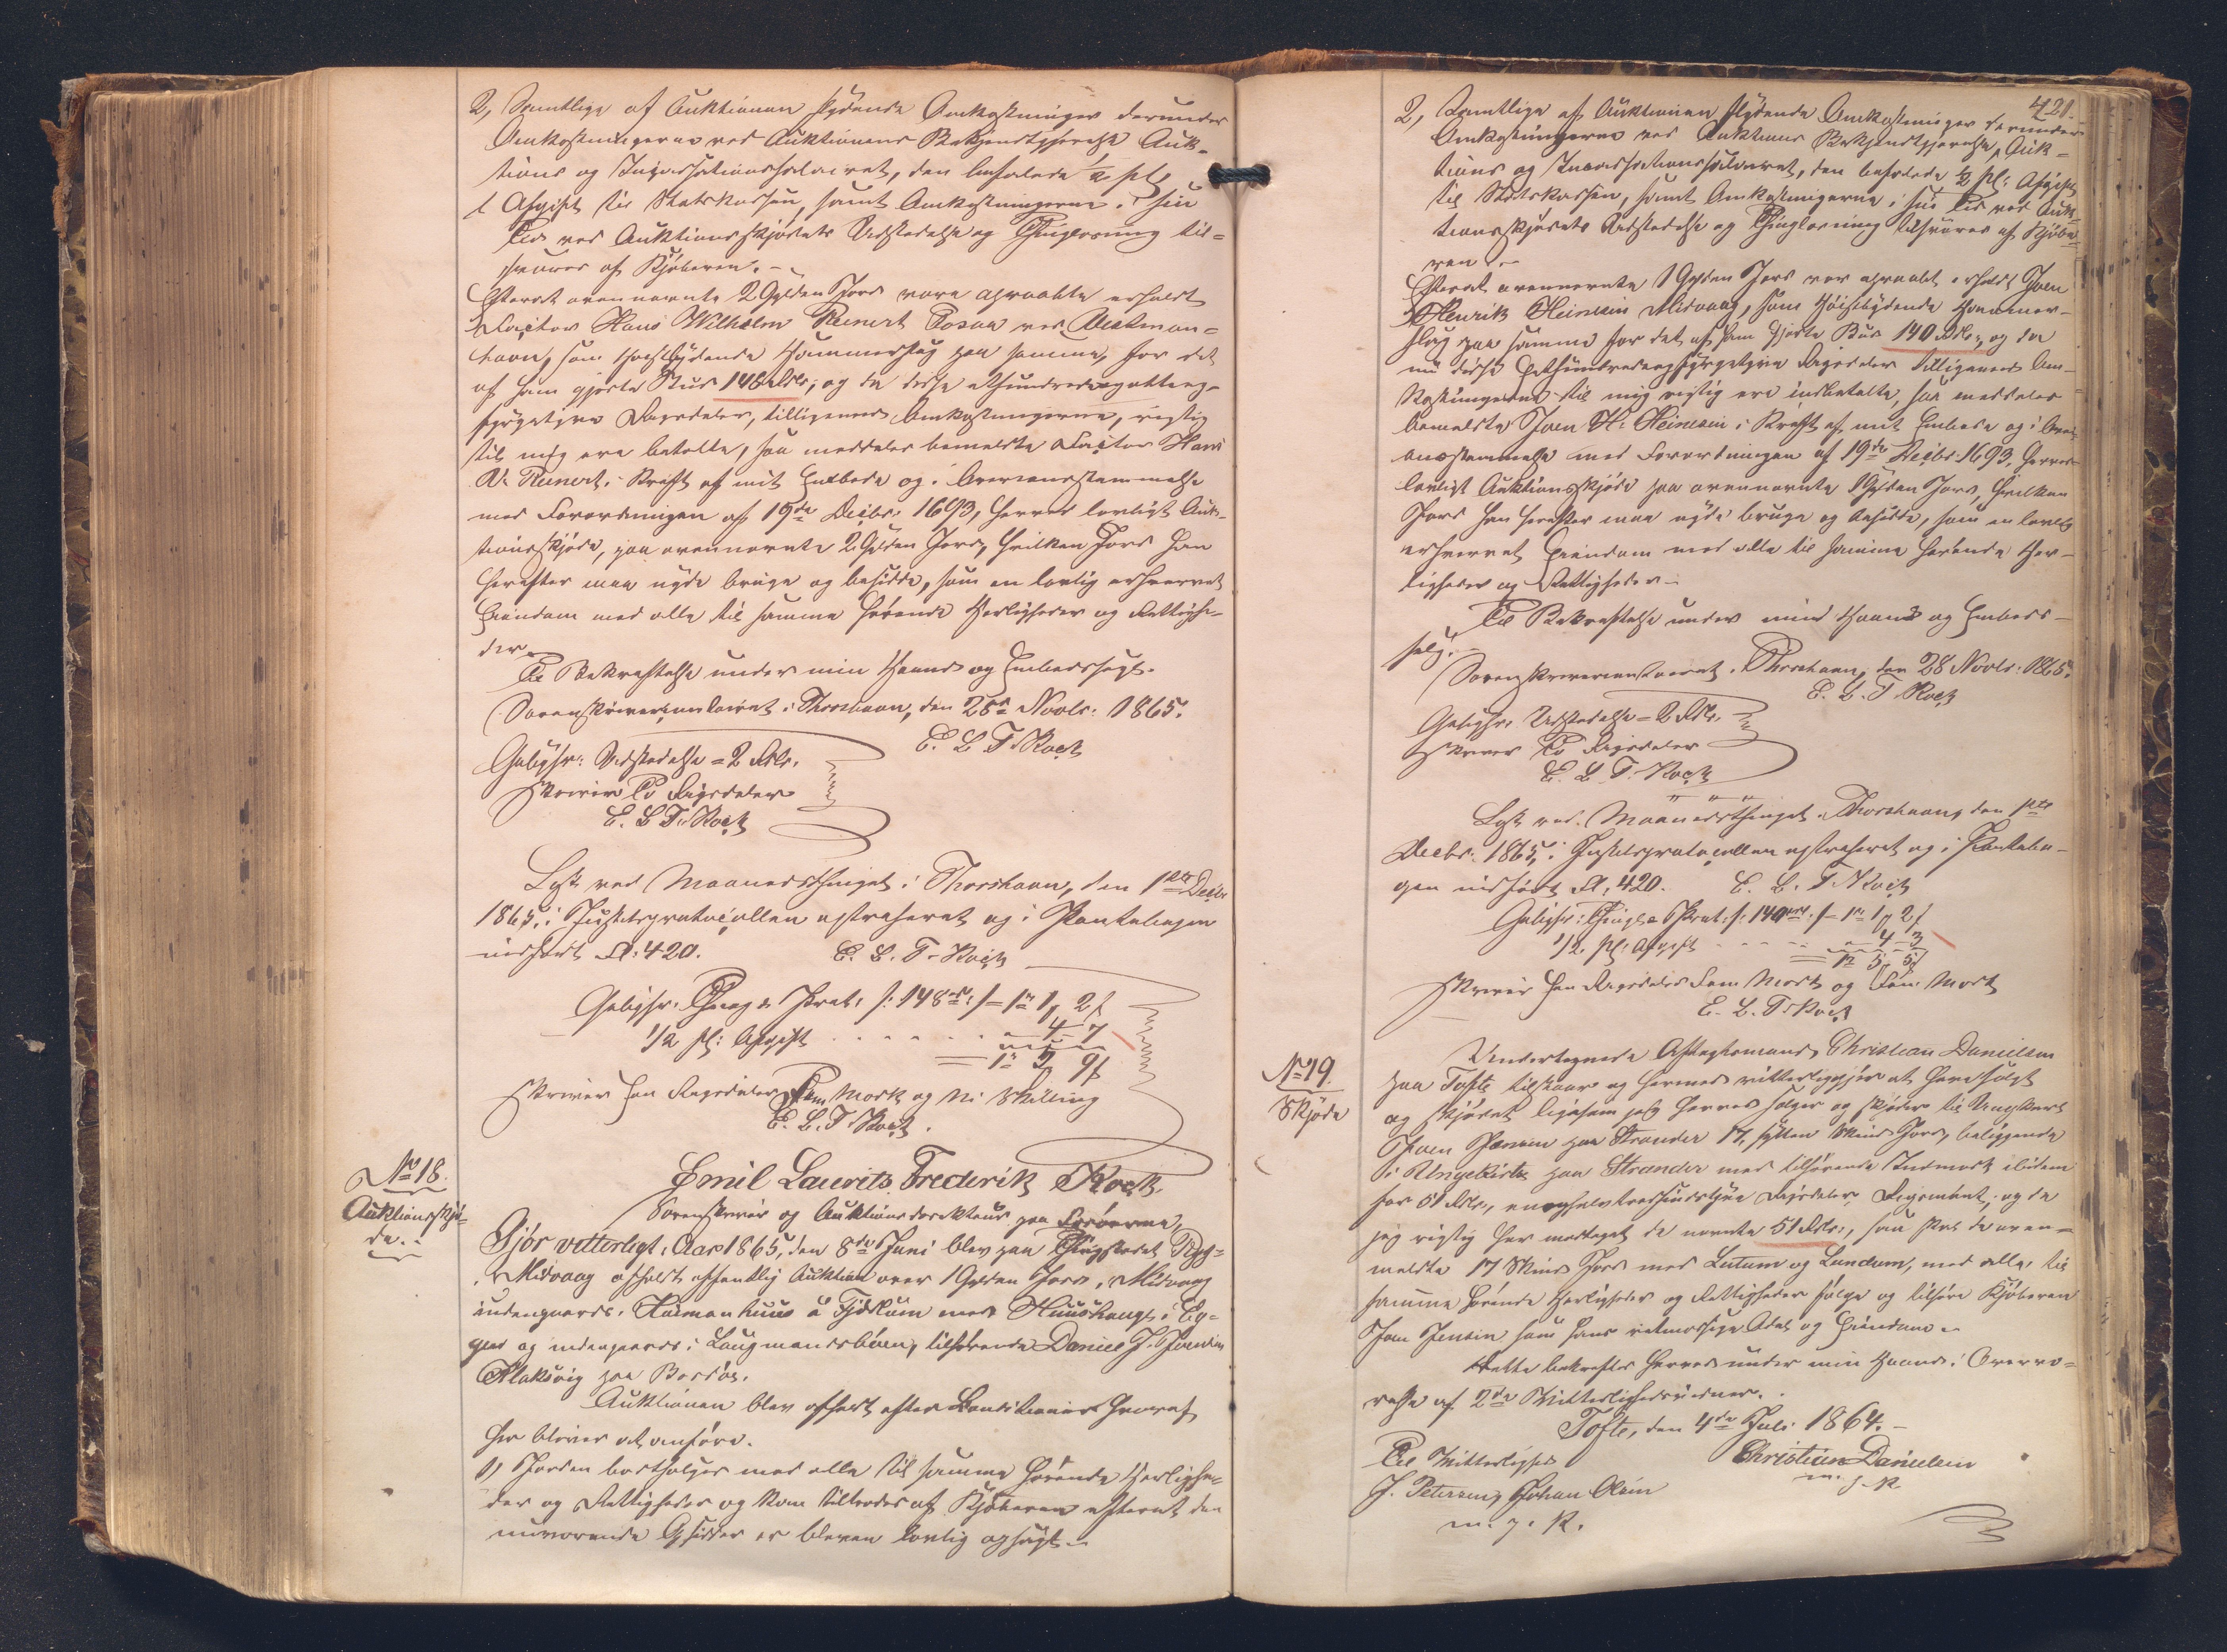 2, Samtlige af Auktionen flydende Omkostninger derunder
Omkostningerne ved Auktionens Bekjendtgjørelse Auk-
tions og Incassationssalairet, den befalede ½ pCt
t Afgift til Statskassen, samt Omkostningerne i sin
Tid ved Auktionsskjødets Udstedelse og Thinglæsning til-
svares af Kjøberen.-
Efterat ovennævnte 2 Gylden Jord vare opraabte erholdt
Factor Hans Wilhelm Reinert Posaa ved Vestman-
havn, som høistbydende Hammerslag paa samme, for det
af ham gjorte Bud 148 Rdlr, og da disse et hundrede og otteog-
fyrgetyve Rigsdaler, tilligemed Omkostningerne, rigtig
til mig ere betalte, saa meddeles bemeldte Factor Hans
W. Reinert i Kraft af mit Embede og i Overeensstemmelse
med Forordningen af 19de Decbr. 1693, herved lovligt Auk-
tionsskjøde, paa ovennævnte 2 Gylden Jord, hvilken Jord han
herefter maa nyde bruge og besidde, som en lovlig erhvervet
Eiendom med alle til samme hørende Herligheder og Rettighe-
der.
Til Bekræftelse under min Haand og Embedssegl.
Sorenskriverembedet i Thorshavn, den 28de Novbr. 1865.
E. L. F. Koch
Gebyhr: Udstedelse = 2 Rdlr.
skriver To Rigsdaler
E. L. F. Koch
Læst ved Maanedsthinget i Thorshavn, den 1ste Decbr
1865, i Justitsprotocollen extraheret og i Pantebogen
indført Fl: 420. E. L. F. Koch
Gebyhr: Thingl. & Prot: f: 148 rd: /= 1 rd 1 μ 2 β
1/2 pCt: Afgift . . . . . . 4 - 7
= 1 rd 5 9 β
skriver Een Rigsdaler Fem Mark og Ni Skilling
E. L. F. Koch.
No 18.
Auktionsskjø-
de.
Emil Laurits Frederik Koch.
Sorenskriver og Auktionsdirekteur paa Færøerne,
Gjør vitterligt: Aar 1865, den 8de Juni blev paa Thingstedet Ryg
i Midvaag afholdt offentlig Auktion over 1 Gylden Jord i Midvaag
indengaards i Heiman huus a Fjørkum med Huushauge i Ey-
gen og indengaards i Laugmandsbøen, tilhørende Daniel J. Joensen
Klaksvig paa Bordø.
Auktionen blev afholdt efter Conditioner hvoraf
her bliver at anføre.
1, Jorden bortsælges med alle til samme hørende Herlighe-
der og Rettigheder og kan tiltrædes af Kjøberen efterat den
nuværende Opsidder er bleven lovlig opsagt.-
421.
2, Samtlige af Auktionen flydende Omkostninger, derunder
Omkostningerne ved Auktions Bekjendtgjørelse, Auk-
tions og Incassationssalairet, den befalede ½ pCt: Afgift
til Statskassen, samt Omkostningerne i sin Tid ved Auk-
tionsskjødets Udstedelse og Thinglæsning tilsvares af Kjøbe-
ren.-
Efterat ovennævnte 1 Gylden Jord var opraabt erholdt Joen
Henrik Heinesen Midvaag, som høistbydende Hammer-
slag paa samme for det af ham gjorte Bud 140 Rdlr, og da
nu disse Eethundrede og fyrgetyve Rigsdaler tilligemed Om-
kostningerne til mig rigtig ere indbetalte, saa meddeles
bemeldte Joen H. Heinesen i Kraft af mit Embede og i Over-
eensstemmelse med Forordningen af 19de Decbr. 1693, herved
lovligt Auktionsskjøde paa ovennævnte 1 Gylden Jord, hvilken
Jord han herefter maa nyde bruge og besidde, som en lovlig
erhvervet Eiendom med alle til samme hørende Her-
ligheder og Rettigheder.-
Til Bekræftelse under min Haand og Embeds-
segl.
Sorenskriverembedet i Thorshavn, den 28 Novbr. 1865.
E. L. F. Koch
Gebyhr: Udstedelse = 2 Rdlr.
skriver To Rigsdaler
E. L. F. Koch
Læst ved Maanedsthinget i Thorshavn, den 1ste
Decbr. 1865, i Justitsprotocollen extraheret og i Pantebo-
gen indført Fl: 420. E. L. F. Koch
Gebyhr: Thingl. & Prot: f: 140 rd: /= 1 rd 1 μ 2 β
1/2 pCt: Afgift . . . . . 4 - 3
= 1 rd 5 μ 5 β
skriver Een Rigsdaler Fem Mark og Fem Mark
E. L. F. Koch
No 19.
Skjøde
Undertegnede Aftægtsmand, Christian Danielsen
paa Tofte tilstaar og hermed vitterliggjør at have solgt
og skjødet ligesom jeg herved sælger og skjøder til Ungkarl
Joen Joensen paa Strander 17, sytten Skind Jord, beliggende
i Ungekirke paa Strander med tilhørende Indmark ibidem
for 51 Rdlr, eenoghalvtredsindstyve Rigsdaler Rigsmønt, og da
jeg rigtig har modtaget de nævnte 51 Rdlr:, saa skal de oven-
meldte 17 Skind Jord med Lutum og Lundum, med alle til
samme hørende Herligheder og Rettigheder følge og tilhøre Kjøberen
Joen Jensen som hans retmæssige Odel og Eiendom.-
Dette bekræftes herved under min Haand i Overvæ-
relse af 2de Vitterlighedsvidner.
Tofte, den 4de Juli 1864.-
Til Vitterlighed Christian Danielsen
J. Petersen, Johan Olsen m. f. P.
m. f. P.